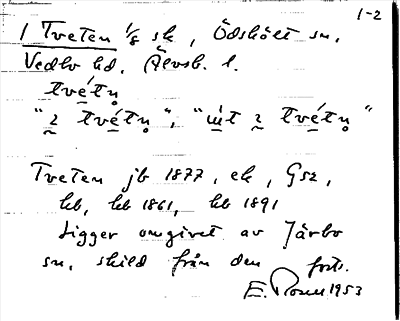 1-2
1 Tveten 1/8 sk, Ödskölt sn.
Vedbo hd. Älvsb. l.
tvétn̥
"2 tvétn̥", "út 2 tvétn̥"
Tveten jb 1877, ek, Gsz,
kb, kb 1861, kb 1891
Ligger omgivet av Järbo
sn, skild från den forts.
E. Rosell 1953